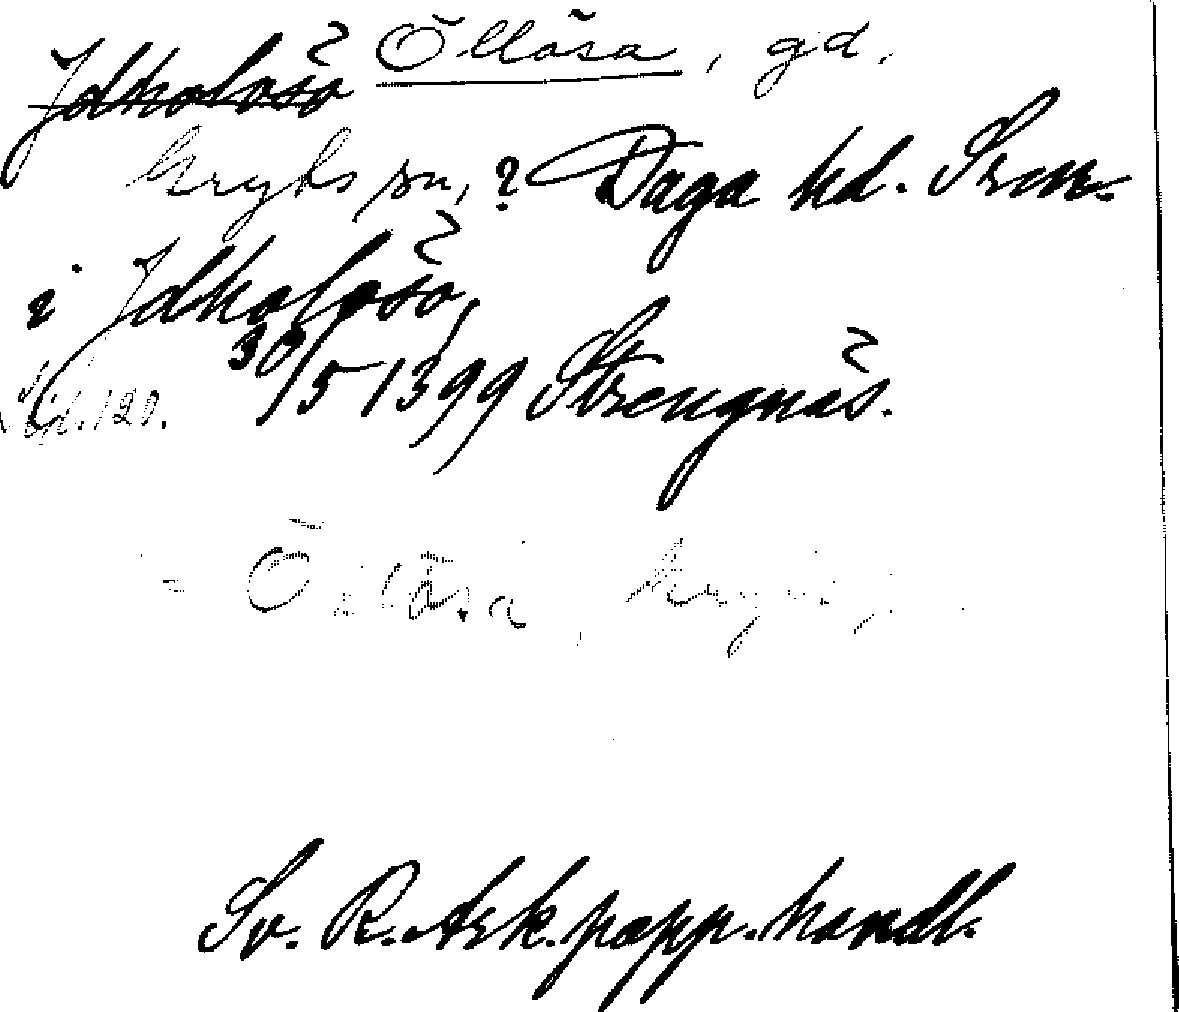 Jdholaso Öllösa, gd.
kryts sn, ? Daga hd. Srm.
i Jdholoso,
30/5 1399 Strengnäs.
= Öllösa,
Sv. R. Ark. papp. handl.